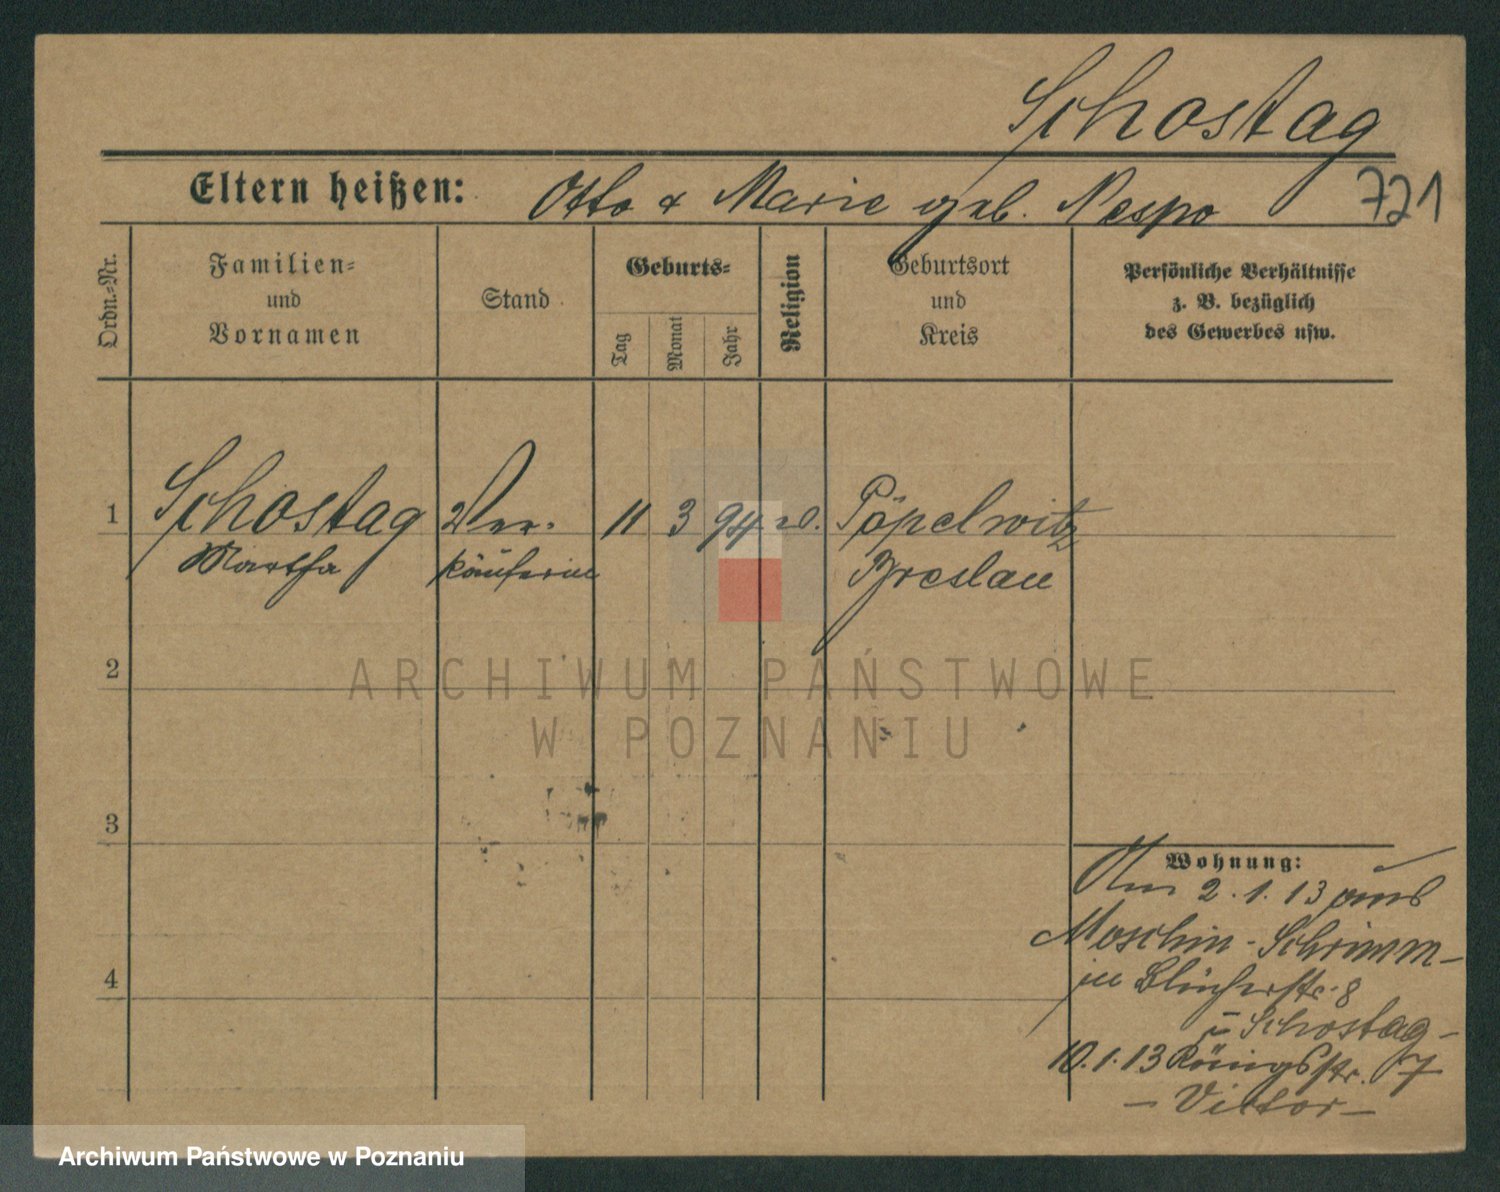 Schostag
Eltern heißen: Otto & Marie geb. Nespo
721
Ordn.-Nr.
Familien-
und
Vornamen
Stand
Geburts-
Tag
Monat
Jahr
Religion
Geburtsort
und
Kreis
Persönliche Verhältnisse
z. B. bezüglich
des Gewerbes usw.
1 Schostag Ver- 11 3 94 Pöpelwitz
Martha käuferin Breslau
2
ARCHIWUM PAŃSTWOWE
W POZNANIU
3
4
Wohnung:
Am 2.1.13 aus
Moschin-Schrimm-
in Blücherstr. 8
Schostag-
10.1.13 Königsstr. 7
- Victor -
Archiwum Państwowe w Poznaniu